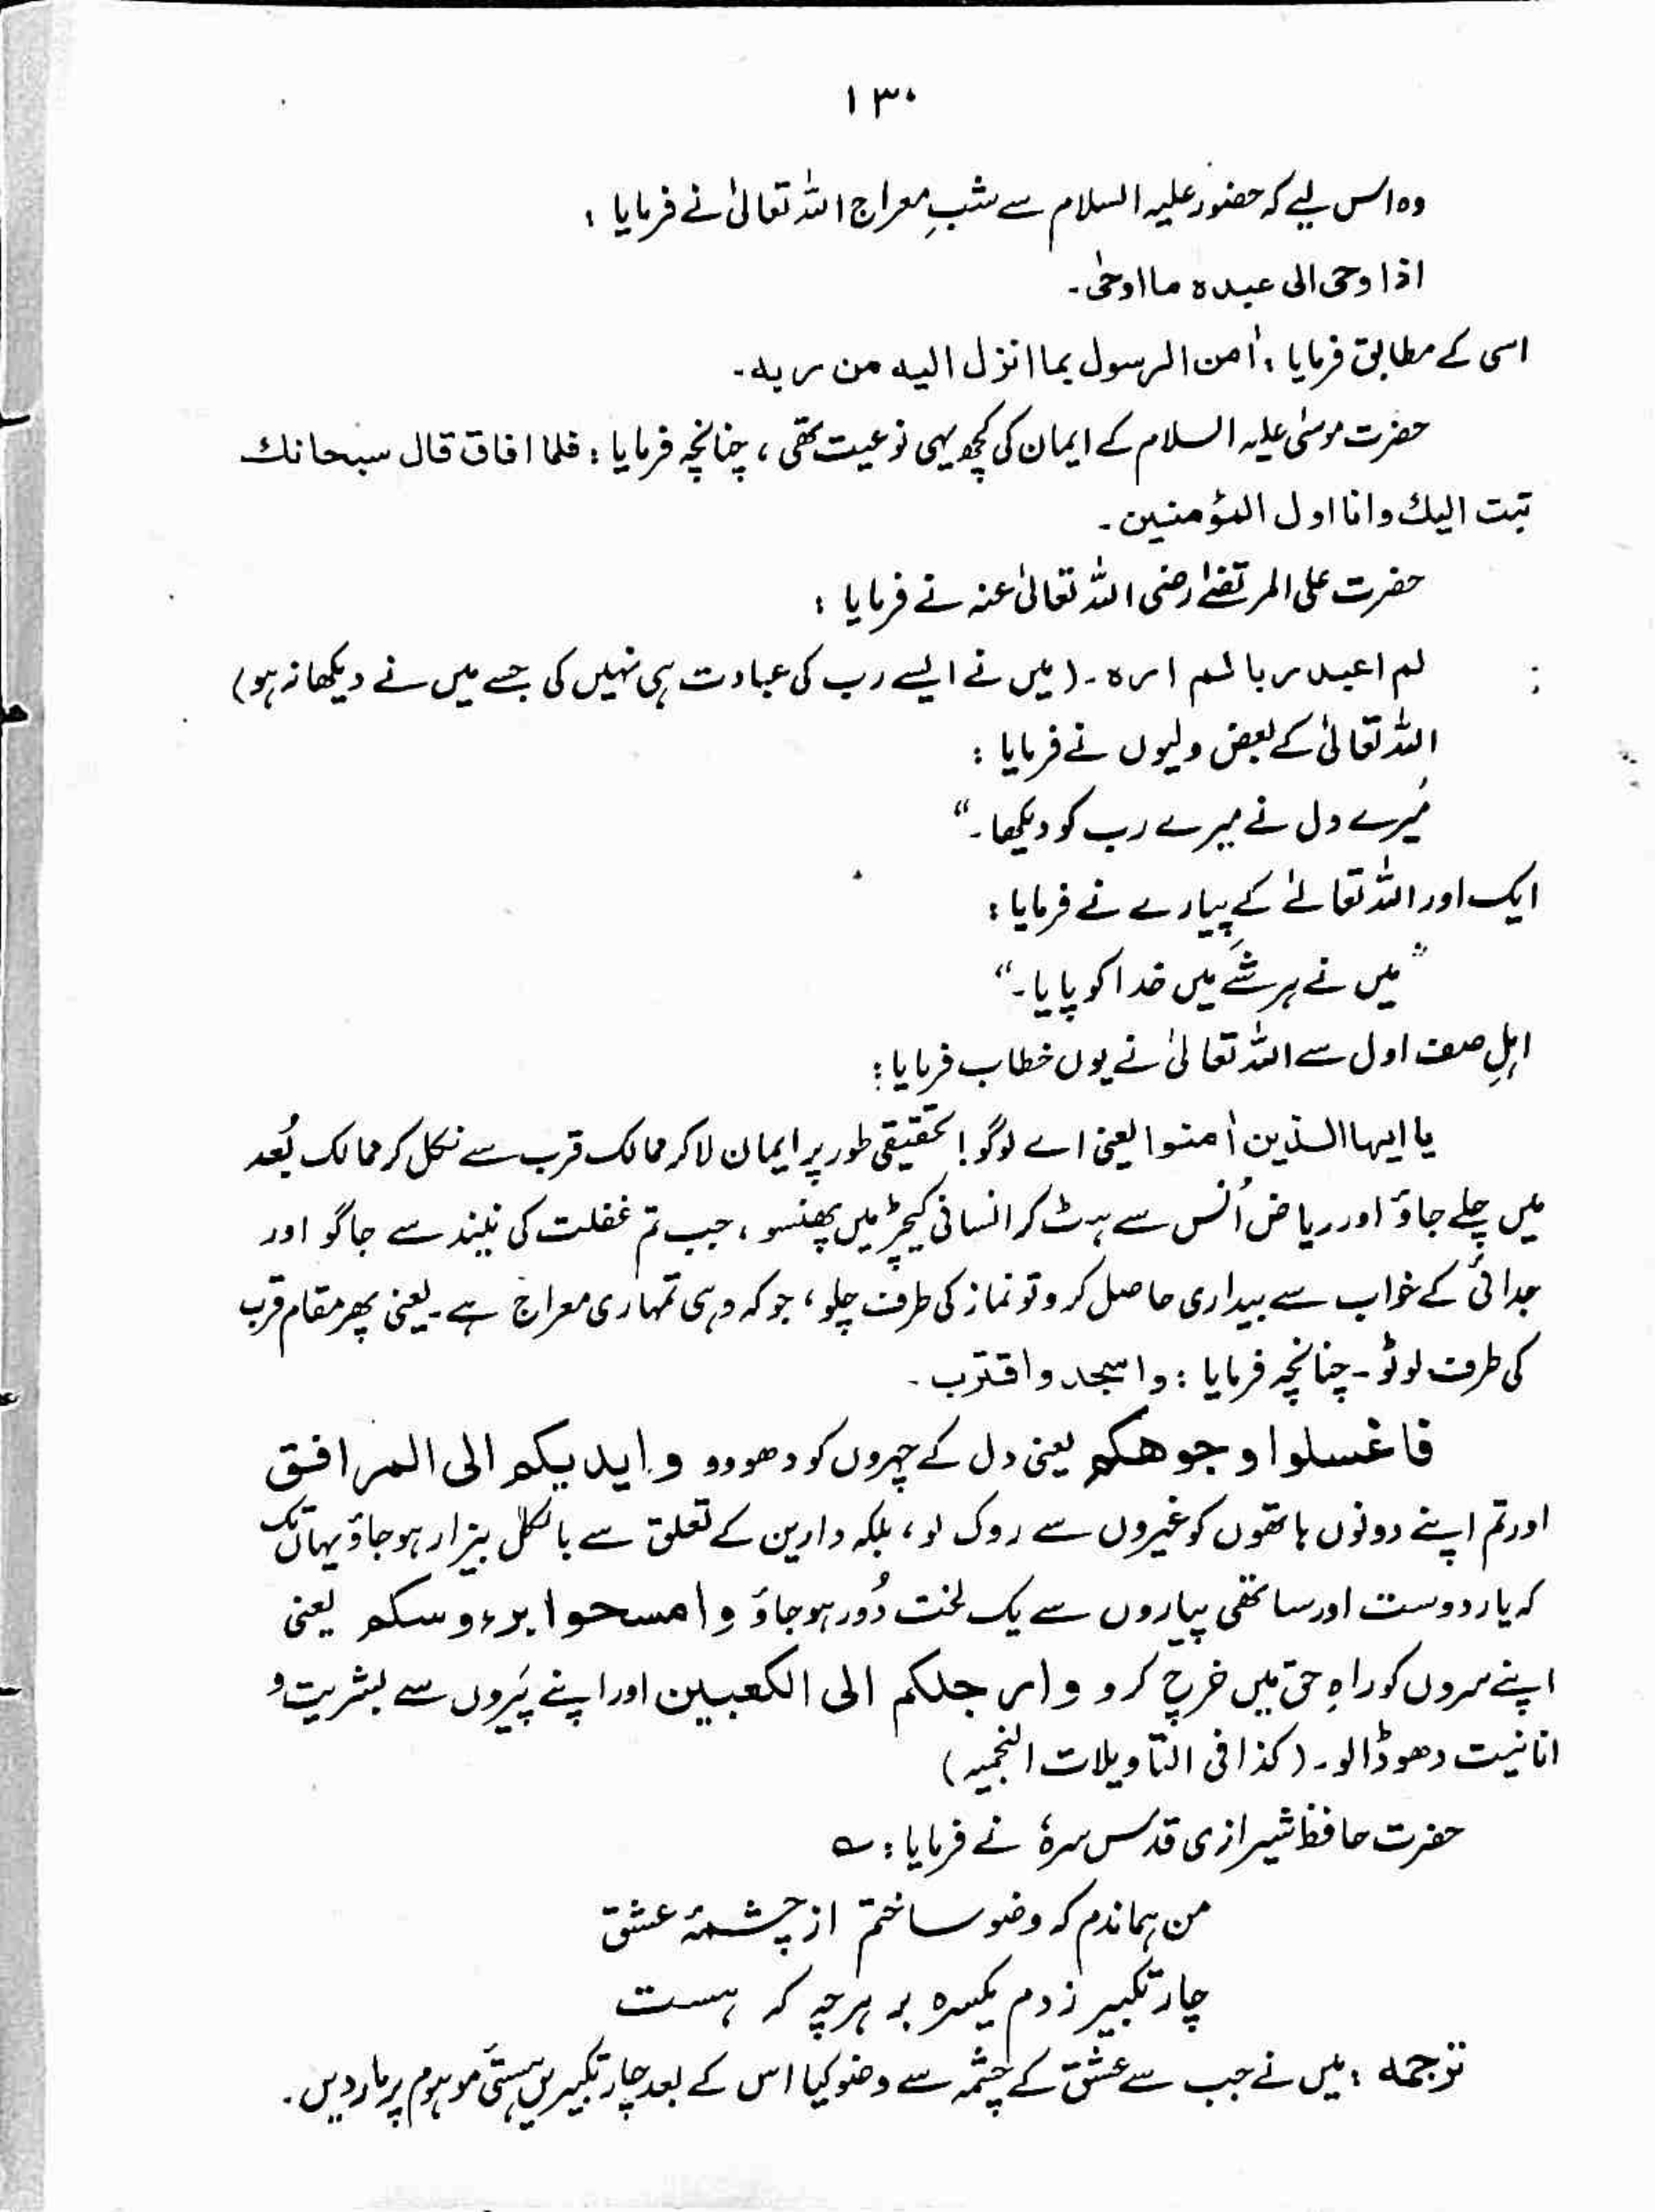 ۱۳۰
وہ اس لیے کہ حضور علیہ السلام سے شبِ معراج اللہ تعالیٰ نے فرمایا :
اذا وحی الی عبدہ ما اوحٰی۔
اسی کے مطابق فرمایا : اٰمن الرسول بما انزل الیہ من ربہ۔
حضرت موسٰی علیہ السلام کے ایمان کی کچھ یہی نوعیت تھی ، چنانچہ فرمایا : فلما افاق قال سبحانك
تبت الیك وانا اول المؤمنین۔
حضرت علی المرتضےٰ رضی اللہ تعالیٰ عنہ نے فرمایا :
لم اعبد ربا لم ارہ۔ (میں نے ایسے رب کی عبادت ہی نہیں کی جسے میں نے دیکھا نہ ہو)
اللہ تعالیٰ کے بعض ولیوں نے فرمایا :
میرے دل نے میرے رب کو دیکھا۔“
ایک اور اللہ تعالےٰ کے پیارے نے فرمایا :
”میں نے ہر شے میں خدا کو پایا۔“
اہلِ صف اول سے اللہ تعالیٰ نے یوں خطاب فرمایا :
یا ایہا الذین اٰمنوا یعنی اے لوگو! تحقیقی طور پر ایمان لا کر ممالک قرب سے نکل کر ممالک بُعد
میں چلے جاؤ اور ریاض اُنس سے ہٹ کر انسانی کیچڑ میں پھنسو ، جب تم غفلت کی نیند سے جاگو اور
جدائی کے خواب سے بیداری حاصل کرو تو نماز کی طرف چلو ، جو کہ وہی تمہاری معراج ہے۔ یعنی پھر مقام قرب
کی طرف لوٹو۔ چنانچہ فرمایا : واسجد واقترب۔
فاغسلوا وجوھکم یعنی دل کے چہروں کو دھوو و ایدیکم الی المرافق
اور تم اپنے دونوں ہاتھوں کو غیروں سے روک لو ، بلکہ دارین کے تعلق سے بالکل بیزار ہو جاؤ یہاں تک
کہ یار دوست اور ساتھی پیاروں سے یک لخت دُور ہو جاؤ وامسحوا برءوسکم یعنی
اپنے سروں کو راہِ حق میں خرچ کرو وارجلکم الی الکعبین اور اپنے پَیروں سے بشریت و
انانیت دھو ڈالو۔ (کذا فی التاویلات النجمیہ)
حضرت حافظ شیرازی قدس سرہٗ نے فرمایا : ؎
من ہماندم کہ وضو ساختم از چشمۂ عشق
چار تکبیر زدم یکسرہ بر ہرچہ کہ ہست
ترجمہ : میں نے جب سے عشق کے چشمہ سے وضو کیا اس کے بعد چار تکبیریں ہستیِ موہوم پر مار دیں۔